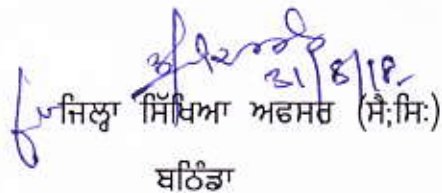 31/8/18
ਜਿਲ੍ਹਾ ਸਿੱਖਿਆ ਅਫਸਰ (ਸੈ:ਸਿ:)
ਬਠਿੰਡਾ